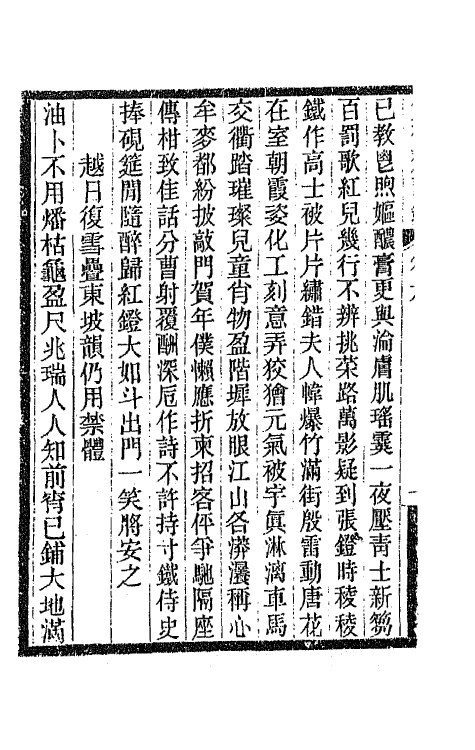 已教鬯煦嫗醲膏更與淪膚肌瑤霙一夜壓靑士新篘
百罰歌紅兒幾行不辨挑菜路萬影疑到張鐙時稜稜
鐵作高士被片片繡錯夫人幃爆竹滿街殷雷動唐花
在室朝霞姿化工刻意弄狡獪元氣被宇眞淋漓車馬
交衢踏璀璨兒童肖物盈階墀放眼江山各漭瀁稱心
牟麥都紛披敲門賀年僕懶應折柬招客伻爭馳隔座
傳柑致佳話分曹射覆酬深卮作詩不許持寸鐵侍史
捧硯筵閒隨醉歸紅鐙大如斗出門一笑將安之
越日復雪疊東坡韻仍用禁體
油卜不用燔枯龜盈尺兆瑞人人知前宵已鋪大地滿